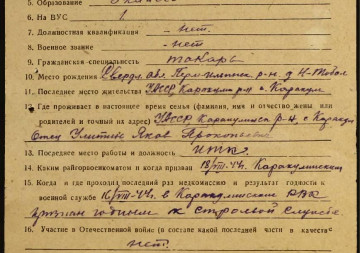 5. Образование
6. На ВУС 1.
7. Должностная квалификация - нет.
8. Военное звание - нет
9. Гражданская специальность токарь
10. Место рождения Сверд. обл. р-н. д. Н-Тобол
11. Последнее место жительства УССР р-н с.
12. Где проживает в настоящее время семья (фамилия, имя и отчество жены или
родителей и точный их адрес) УССР р-н, с.
Отец Яков
13. Последнее место работы и должность ИТК.
14. Каким райгорвоенкоматом и когда призван 18/VIII-44г.
15. Когда и где проходил последний раз медкомиссию и результат годности к
военной службе 16/VIII-44г. в РВК
признан годным к строевой службе
16. Участие в Отечественной войне (в составе какой последней части в качестве
нет.